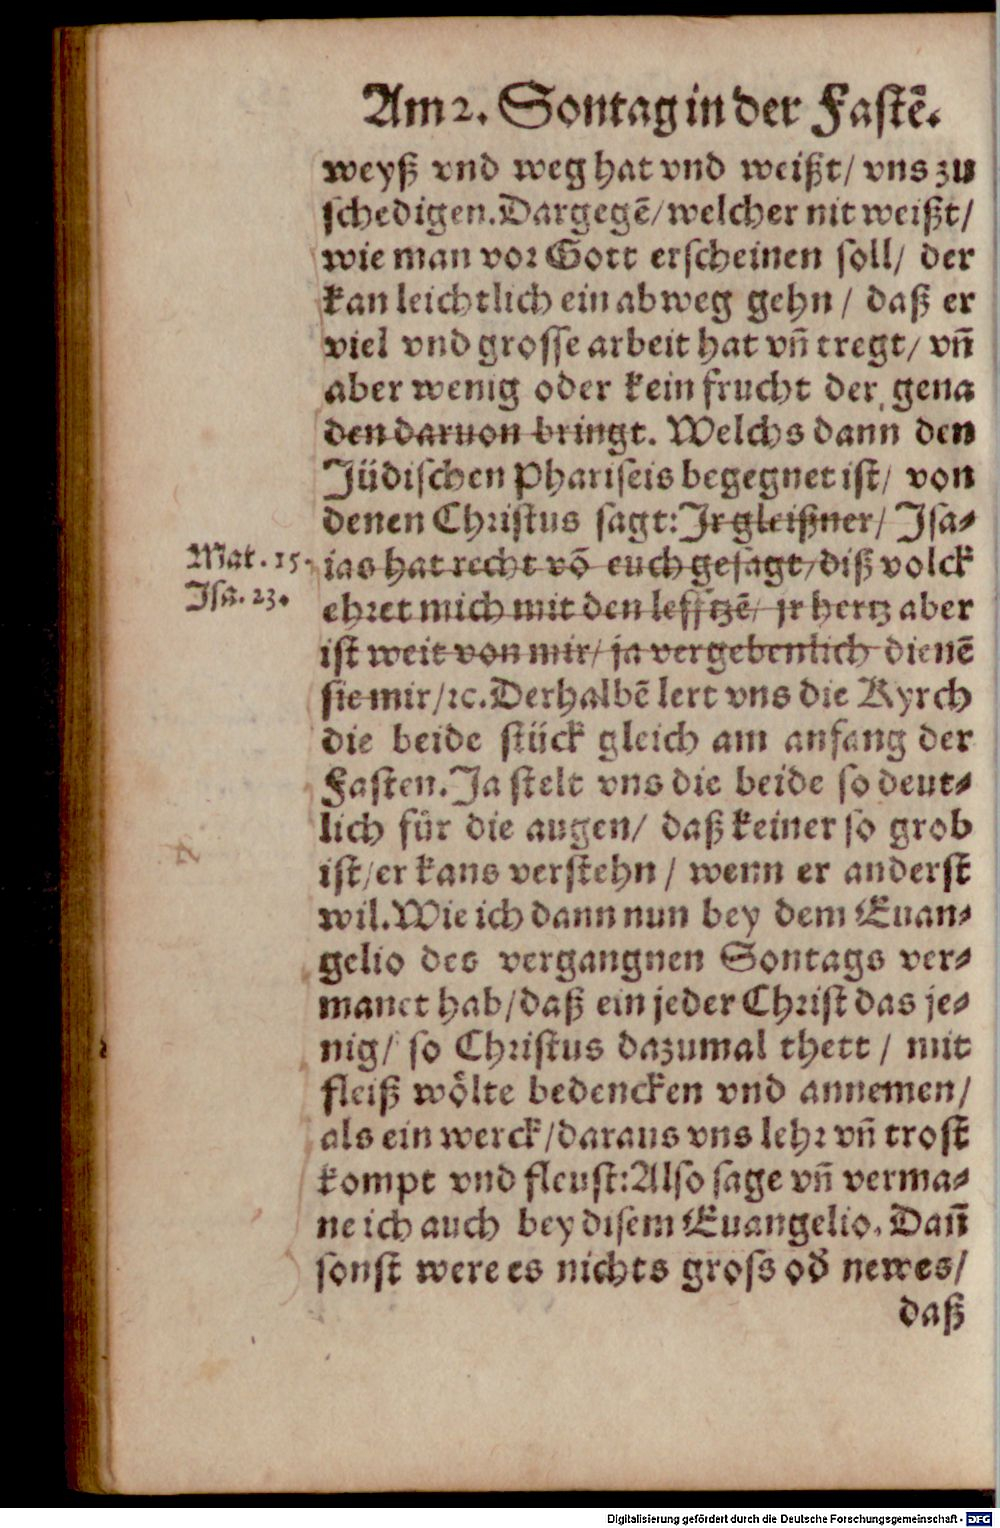 Am 2. Sontag in der Fastē.
weyß vnd weg hat vnd weißt/ vns zu
schedigen. Dargegē/ welcher nit weißt/
wie man vor Gott erscheinen soll/ der
kan leichtlich ein abweg gehn/ daß er
viel vnd grosse arbeit hat vn̄ tregt/ vn̄
aber wenig oder kein frucht der gena
den daruon bringt. Welchs dann den
Jüdischen Phariseis begegnet ist/ von
denen Christus sagt: Jr gleißner/ Jsa-
Mat. 15.
Jsa. 23.
ias hat recht vō euch gesagt/ diß volck
ehret mich mit den lefftzē/ jr hertz aber
ist weit von mir/ ja vergebenlich dienē
sie mir/ ꝛc. Derhalbē lert vns die Kyrch
die beide stück gleich am anfang der
Fasten. Ja stelt vns die beide so deut-
lich für die augen/ daß keiner so grob
ist/ er kans verstehn/ wenn er anderst
wil. Wie ich dann nun bey dem Euan-
gelio des vergangnen Sontags ver-
manet hab/ daß ein jeder Christ das je-
nig/ so Christus dazumal thett/ mit
fleiß wölte bedencken vnd annemen/
als ein werck/ daraus vns lehr vn̄ trost
kompt vnd fleust: Also sage vn̄ verma-
ne ich auch bey disem Euangelio. Dan̄
sonst were es nichts gross od̄ newes/
daß
Digitalisierung gefördert durch die Deutsche Forschungsgemeinschaft - DFG